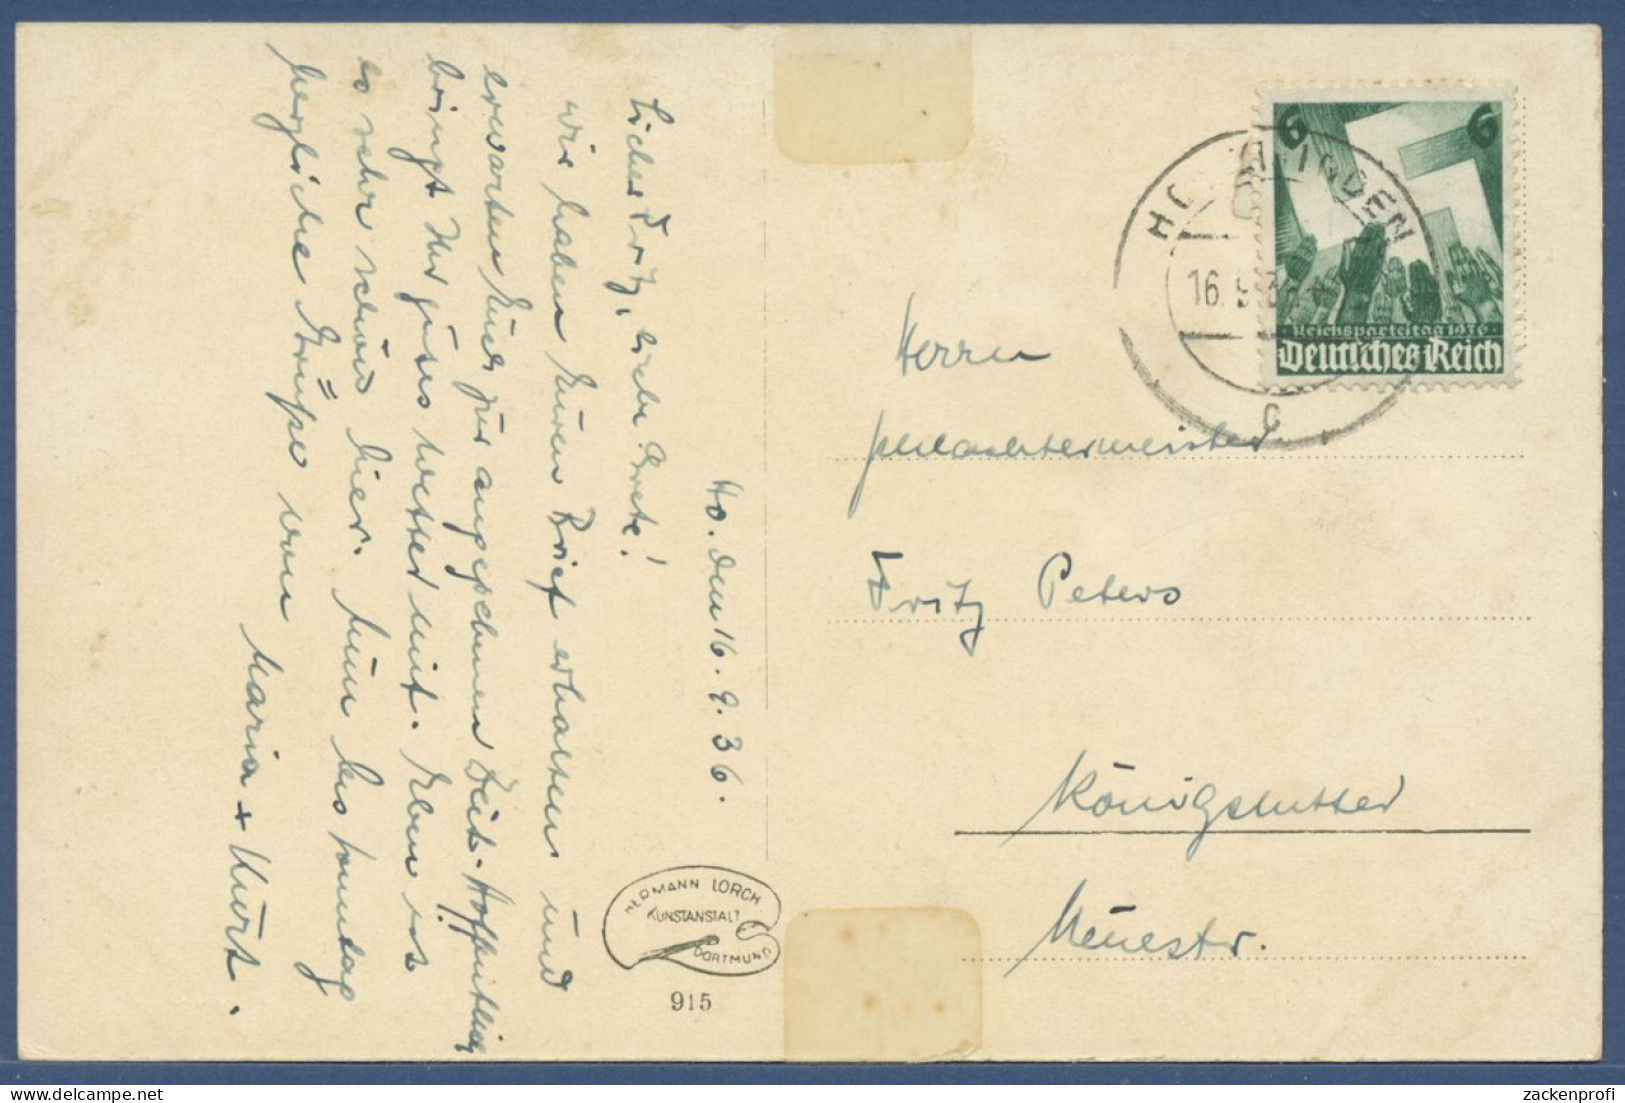 Ho. den 16.9.36.
Lieber Fritz, liebe Grete!
wir haben Euren Brief erhalten und
erwarten Euch zur angegebenen Zeit. Hoffentlich
bringt Ihr gutes Wetter mit. Eben ist
es sehr schön hier. Nun bis Sonntag
herzliche Grüße von
Maria + Kurt.
HERMANN LORCH
KUNSTANSTALT
DORTMUND
915
6 6
Reichsparteitag 1936
Deutsches Reich
16. 9. 36
c
Herrn
Fritz Peters
Königslutter
Neuestr.
zackenprofi